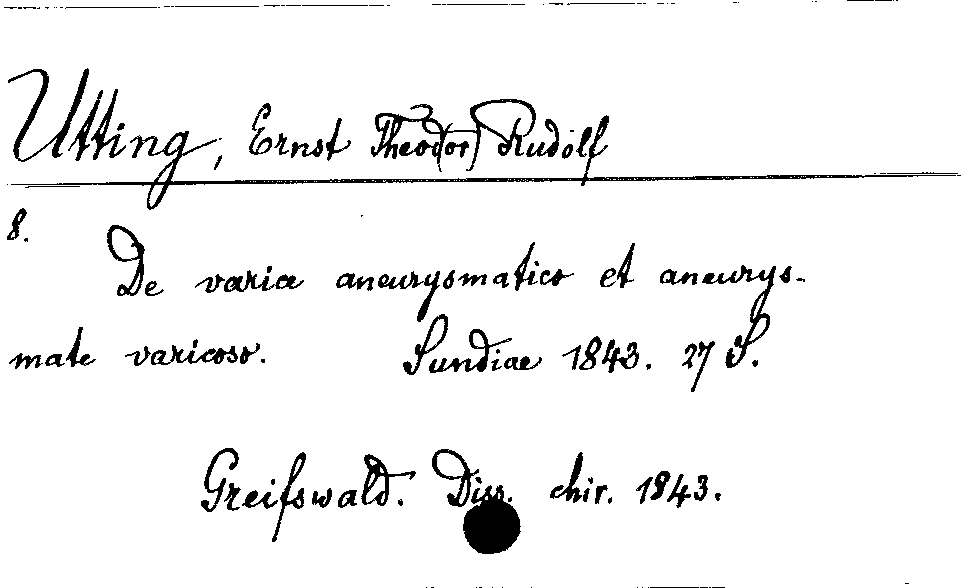 Utting, Ernst Theod(or) Rudolf
8.
De varice aneurysmatico et aneurys-
mate varicoso. Sundiae 1843. 27 S.
Greifswald. Diss. chir. 1843.